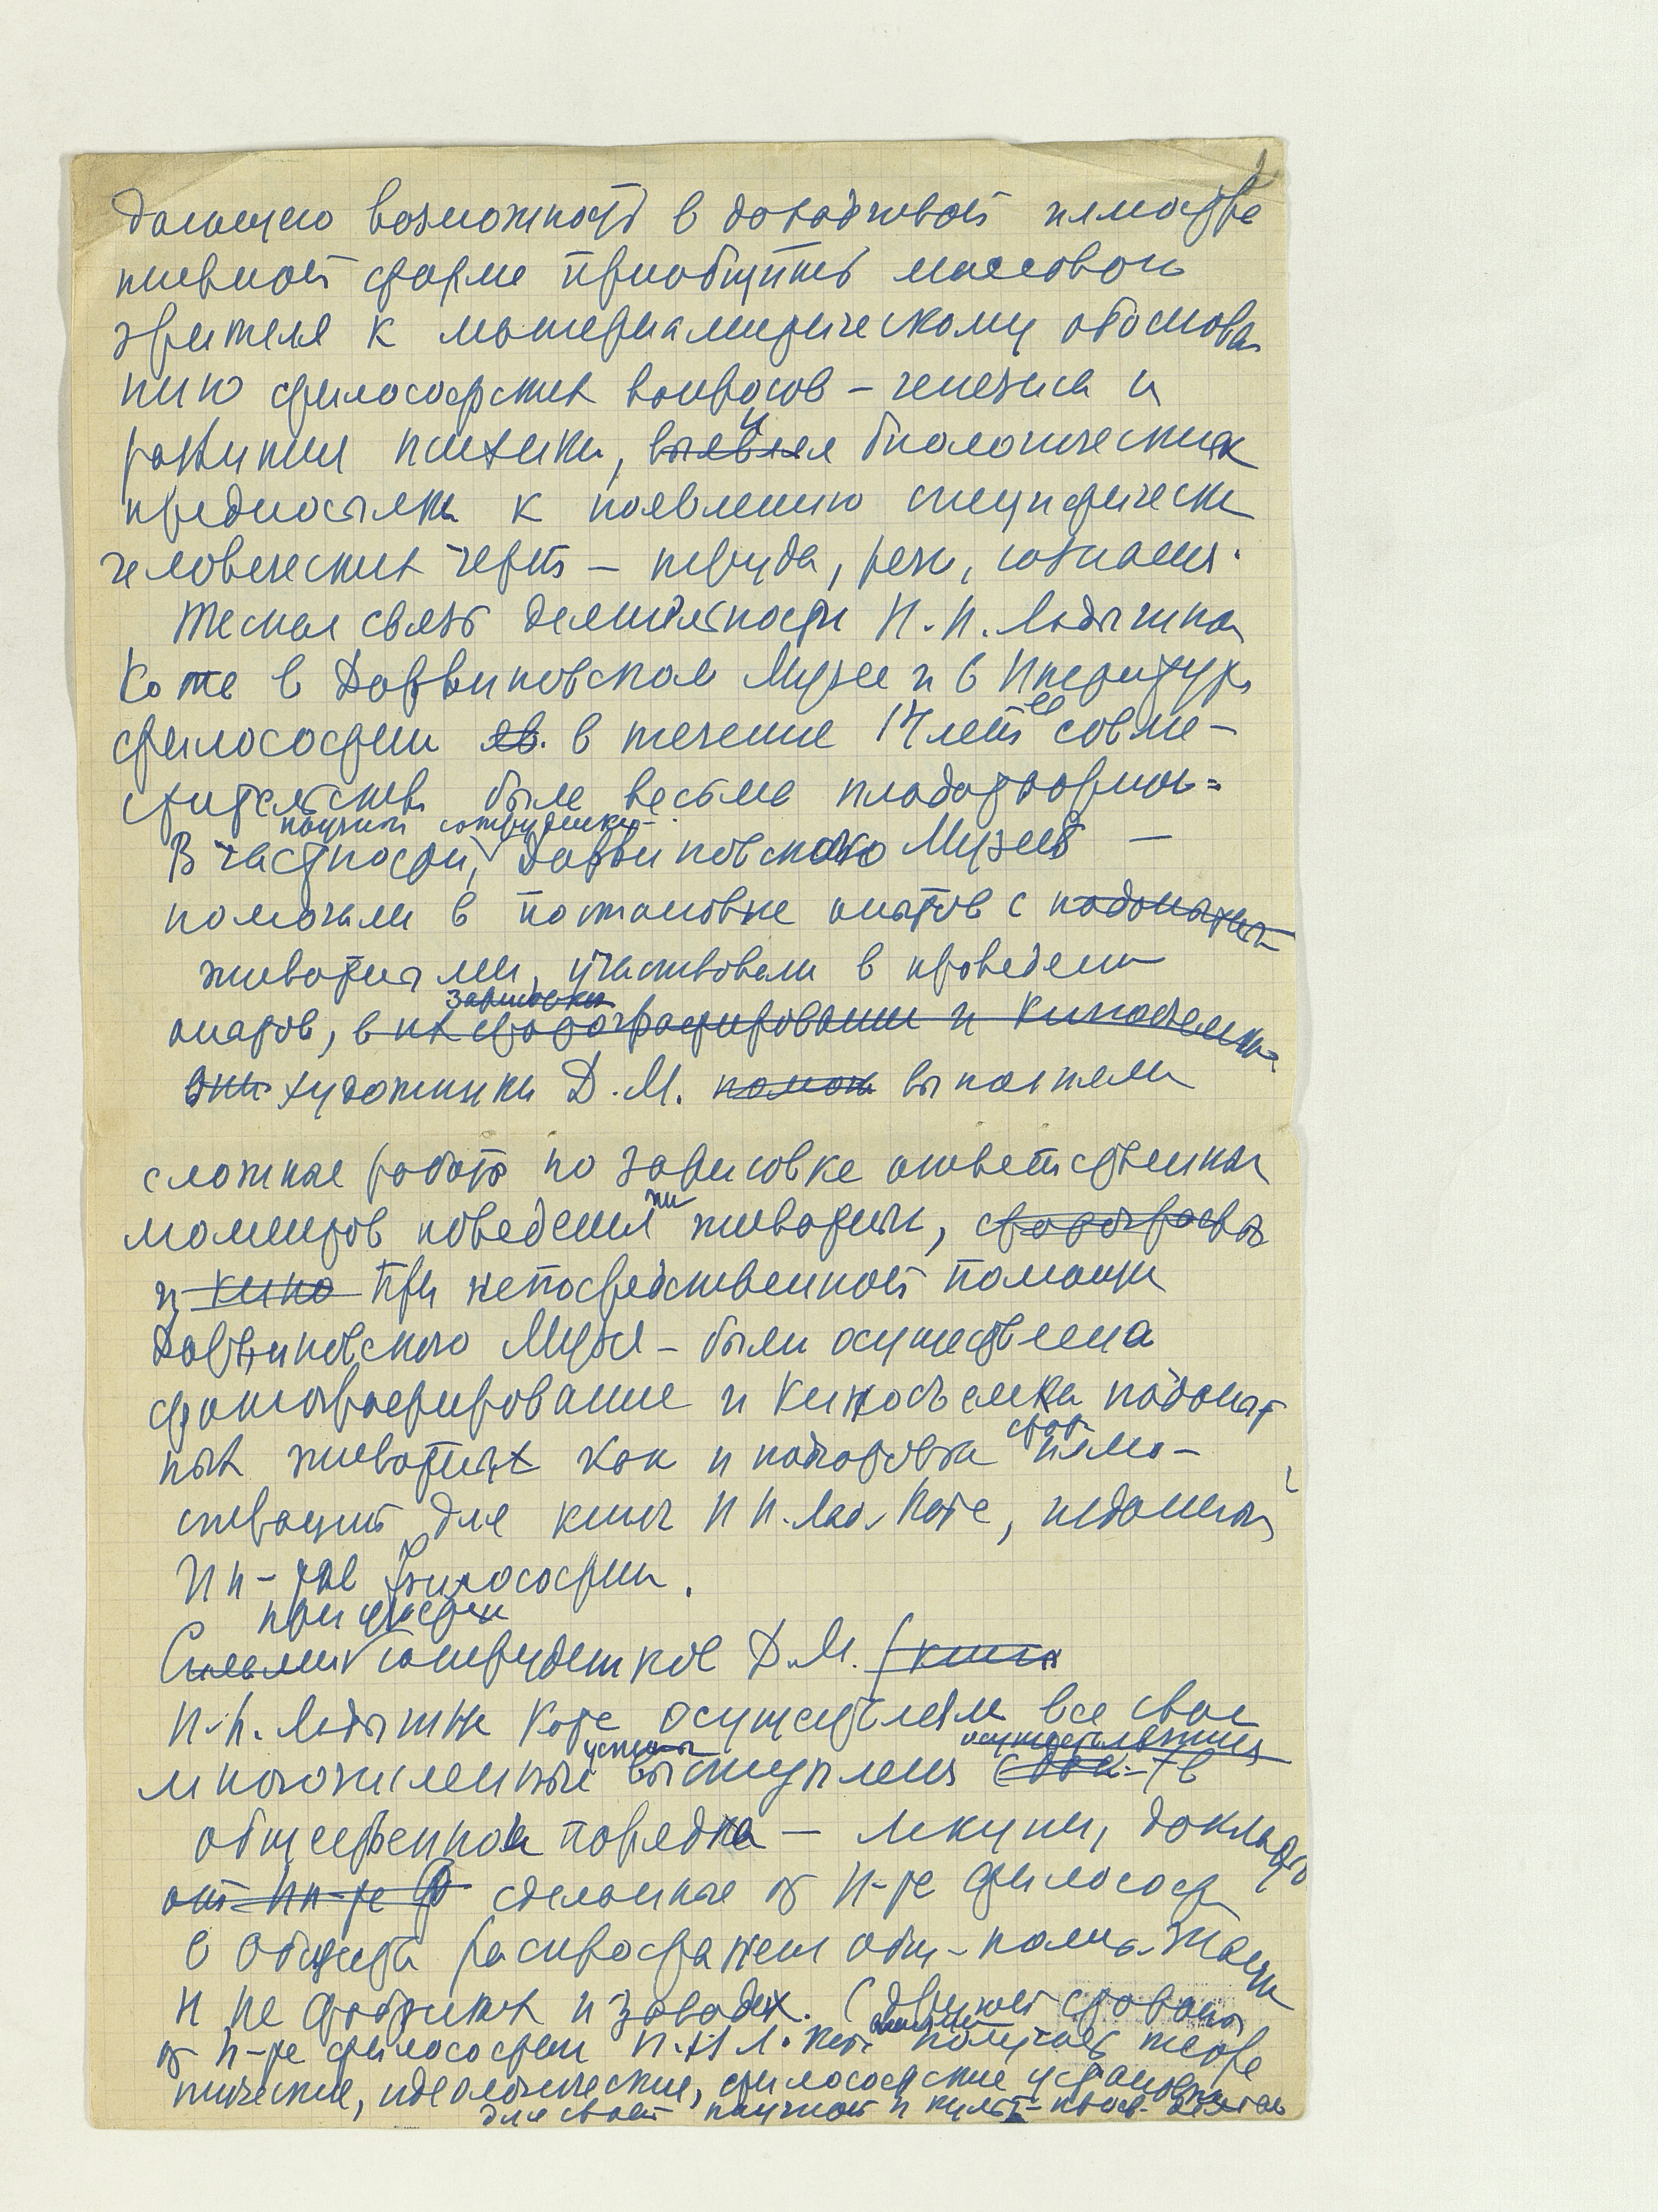 2
дающую возможность в доходчивой иллюстра
тивной форме приобщить массового
зрителя к материалистическому обоснова
нию философских вопросов – генезиса и
развития психики, выявляя и биологических
предпосылок к появлению специфически
человеческих черт – труда, речи, сознания.
Тесная связь деятельности Н.Н. Ладыгиной
Котс в Дарвиновском Музее и в Институте
философии яв. в течение 14 лет ее совме-
стительства была весьма плодотворной=
научные сотрудники
В частности, Дарвиновского Музея –
помогали в постановке опытов с подопытн
животными, участвовали в проведении
зарисовки
опытов, в их фотографировании и киносъемке
они художники Д.М. помог выполняли
сложные работы по зарисовке ответственных
моментов поведения животных, фотографы
и кино При непосредственной помощи
Дарвиновского Музея – были осуществлена
фотографирование и киносъемка подопыт
ных животных как и подготовка фот. иллю-
страций для книг Н.Н. Лад. Котс, изданных
Ин-том Философии.
при участии
Силами сотрудников Д.М. (книги
Н.Н. Ладыгина Котс осуществляла все свои
устные осуществлявшиеся
многочисленные выступления (док. – в
общественном порядке – лекции, доклады
от Ин-та Ф сделанные от И-та философ
О Общества распростране. общ-полит. знаний
и на фабриках и заводах. (
от И-та философии Н.Н Л. Котс получает теоре
тические, идеологические, философские установки
для своей научной и культ-просв. деятель